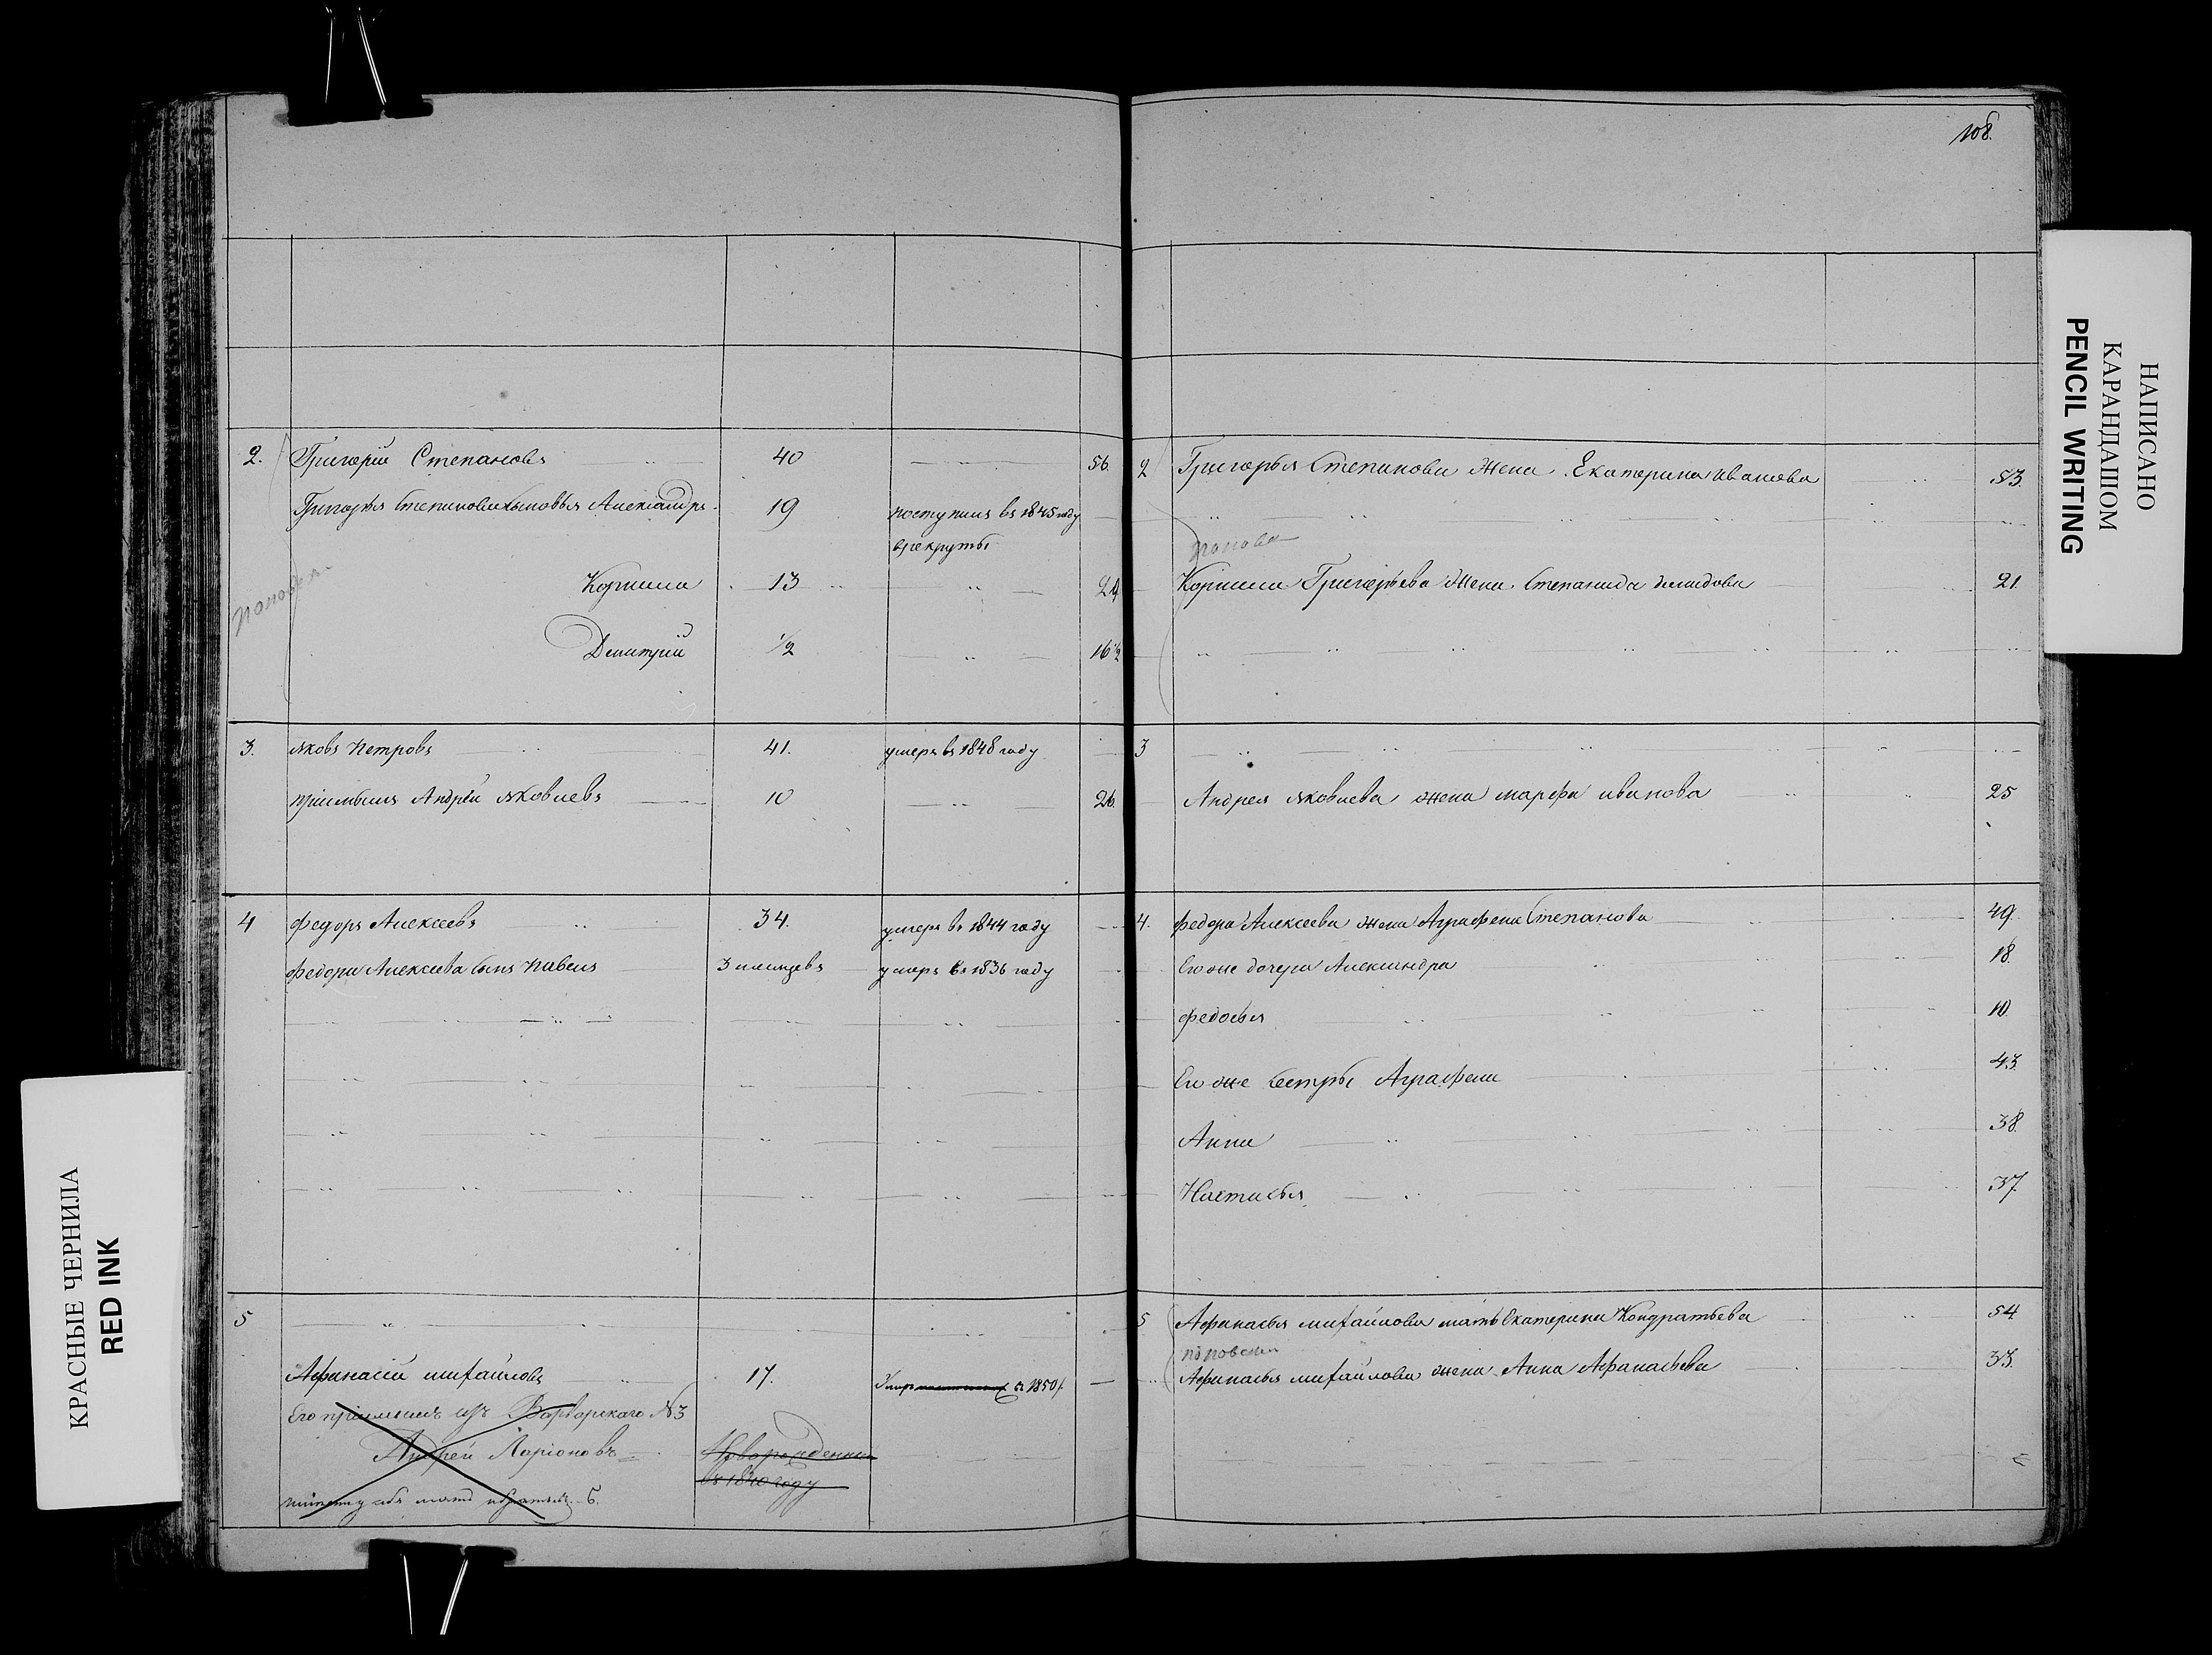 108.
2. Григорій Степановъ 40 56.
Григорья Степанова сыновья Александръ 19 поступилъ въ 1845 году
в рекруты
Корнила 13 29
Дмитрій 1/2 16 1/2
3. Яковъ Петровъ 41. умеръ въ 1848 году
пріимышъ Андрей Яковлевъ 10 26.
4 Федоръ Алексеевъ 34. умеръ въ 1844 году
Федора Алексеева сынъ Павелъ 3 месяцевъ умеръ въ 1836 году
5
Афанасій Михайловъ 17. въ 1850 г.
Его пріимышъ изъ Варварскаго №3
Андрей Ларіоновъ Новорожденный
въ 1840 году
2 Григорья Степанова жена Екатерина Иванова 53.
Попова
Корнила Григорьева жена Степанида Демидова 21.
3
Андрея Яковлева жена Марфа Иванова 25
4. Федора Алексеева жена Аграфена Степанова 49.
Его же дочери Александра 18.
Федосья 10.
Его же сестры Аграфена 43.
Анна 38.
Настасья 37.
5 Афанасья Михайлова мать Екатерина Кондратьева 54
Афанасья Михайлова жена Анна Афанасьева 33.
НАПИСАНО
КАРАНДАШОМ
PENCIL WRITING
КРАСНЫЕ ЧЕРНИЛА
RED INK